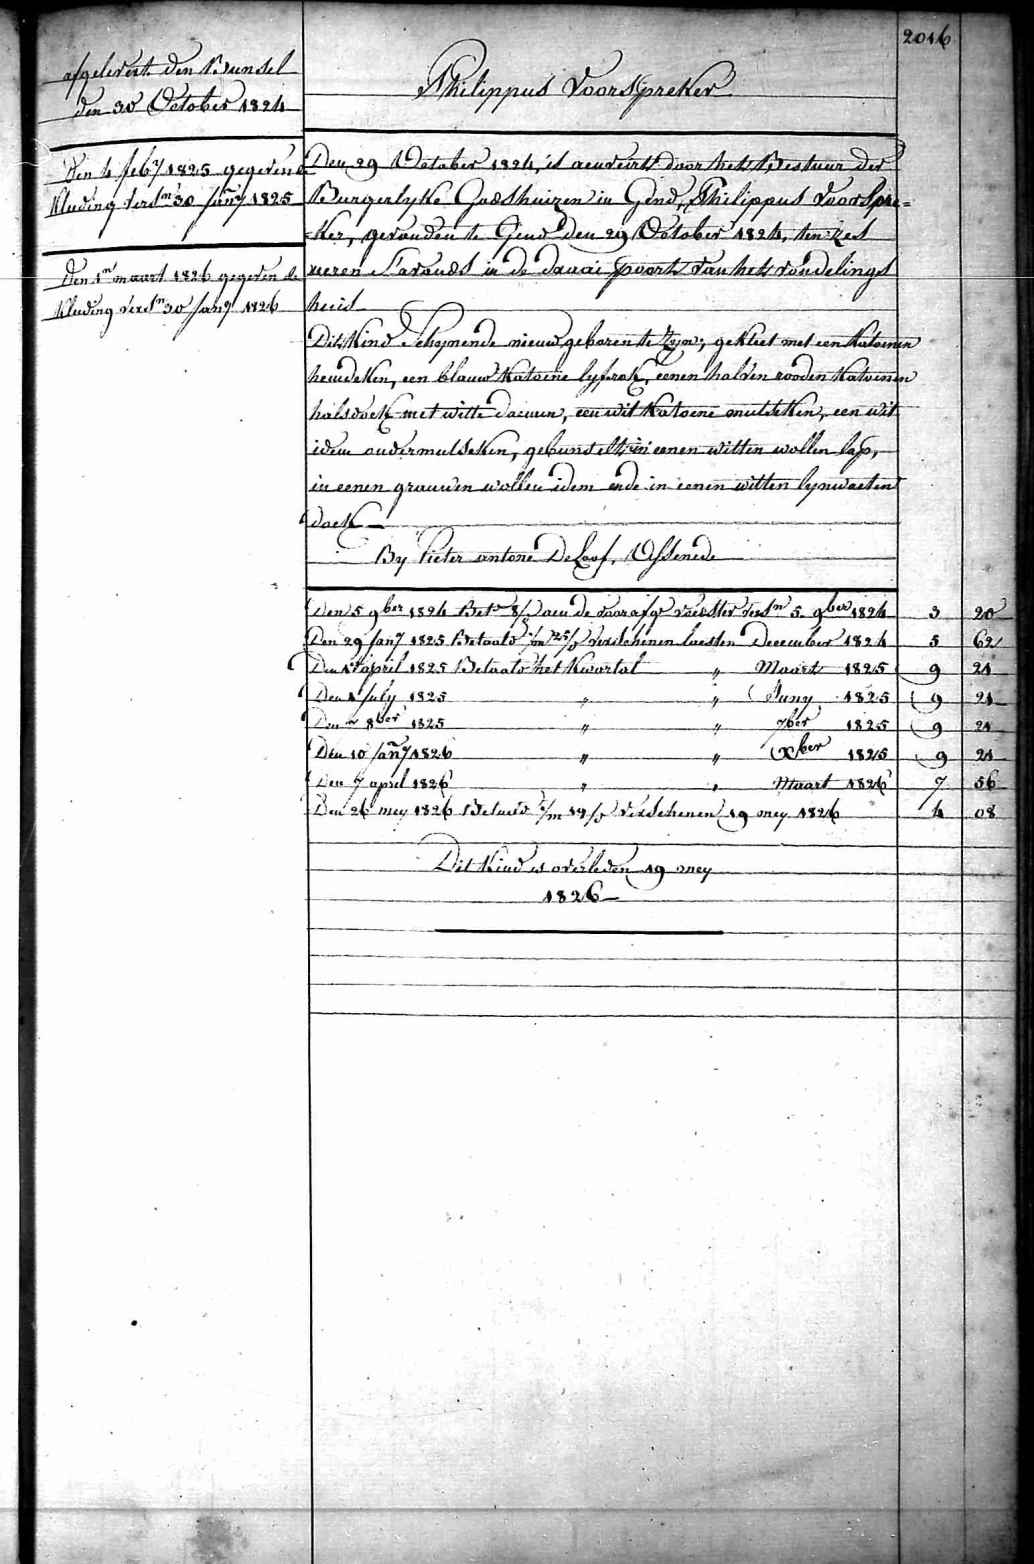 2016
afgelevert den Bunsel
den 30 October 1824
Philippus Voorspreker
Den 4 feby 1825 gegeven de
kluding verst 30 Jany 1825
Den 1n maart 1826 gegeven de
kluding verst 30 Jany 1826
Den 29 October 1824, is aenveirt door het Bestuur der
Burgerlyke Godshuizen in Gend, Philippus Voorspre=
=ker, gevonden te Gend den 29 October 1824, ten zes
ueren s'avonds in de draai poort van het vondelings
huis
Dit Kind Schynende nieuw geboren te Zyn, gekleet met een Katoenen
hemdeken, een blauw Katoene lyfrok, eenen halven rooden Katoenen
halsdoek met witte daeven, een wit Katoene mutseken, een wit
idem ondermutseken, gebunselt in eenen witten wollen lap,
in eenen grauwen wollen idem ende in eenen witten lynwaeten
doek
By Pieter antone De Loof, Assenede
Den 5 9ber 1824 Bet 8/ aen de voorafg voedster verstn 5 9ber 1824 3 20
Den 29 Jany 1825 Betaald 1/m 25/ verschenen laesten December 1824 5 62
Den 1 april 1825 Betaald het Kwartal " Maart 1825 9 21
Den 1 July 1825 " " Juny 1825 9 21
Den 8ber 1825 " " 7ber 1825 9 21
Den 10 Jany 1826 " " Xber 1825 9 21
Den 7 april 1826 " " Maart 1826 7 56
Den 26 mey 1826 Betaeld 1/m 19/ verschenen 19 mey 1826 4 08
Dit Kind is overleden 19 mey
1826